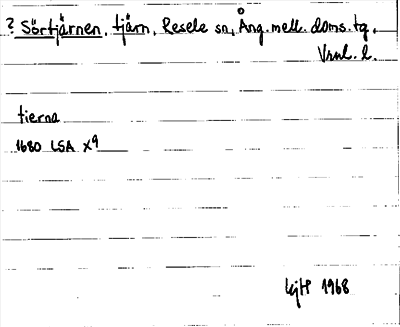 ? Sörtjärnen, tjärn, Resele sn, Ång. mell. doms. tg,
Vnl. l.
tierna
1680 LSA X9
LjH 1968